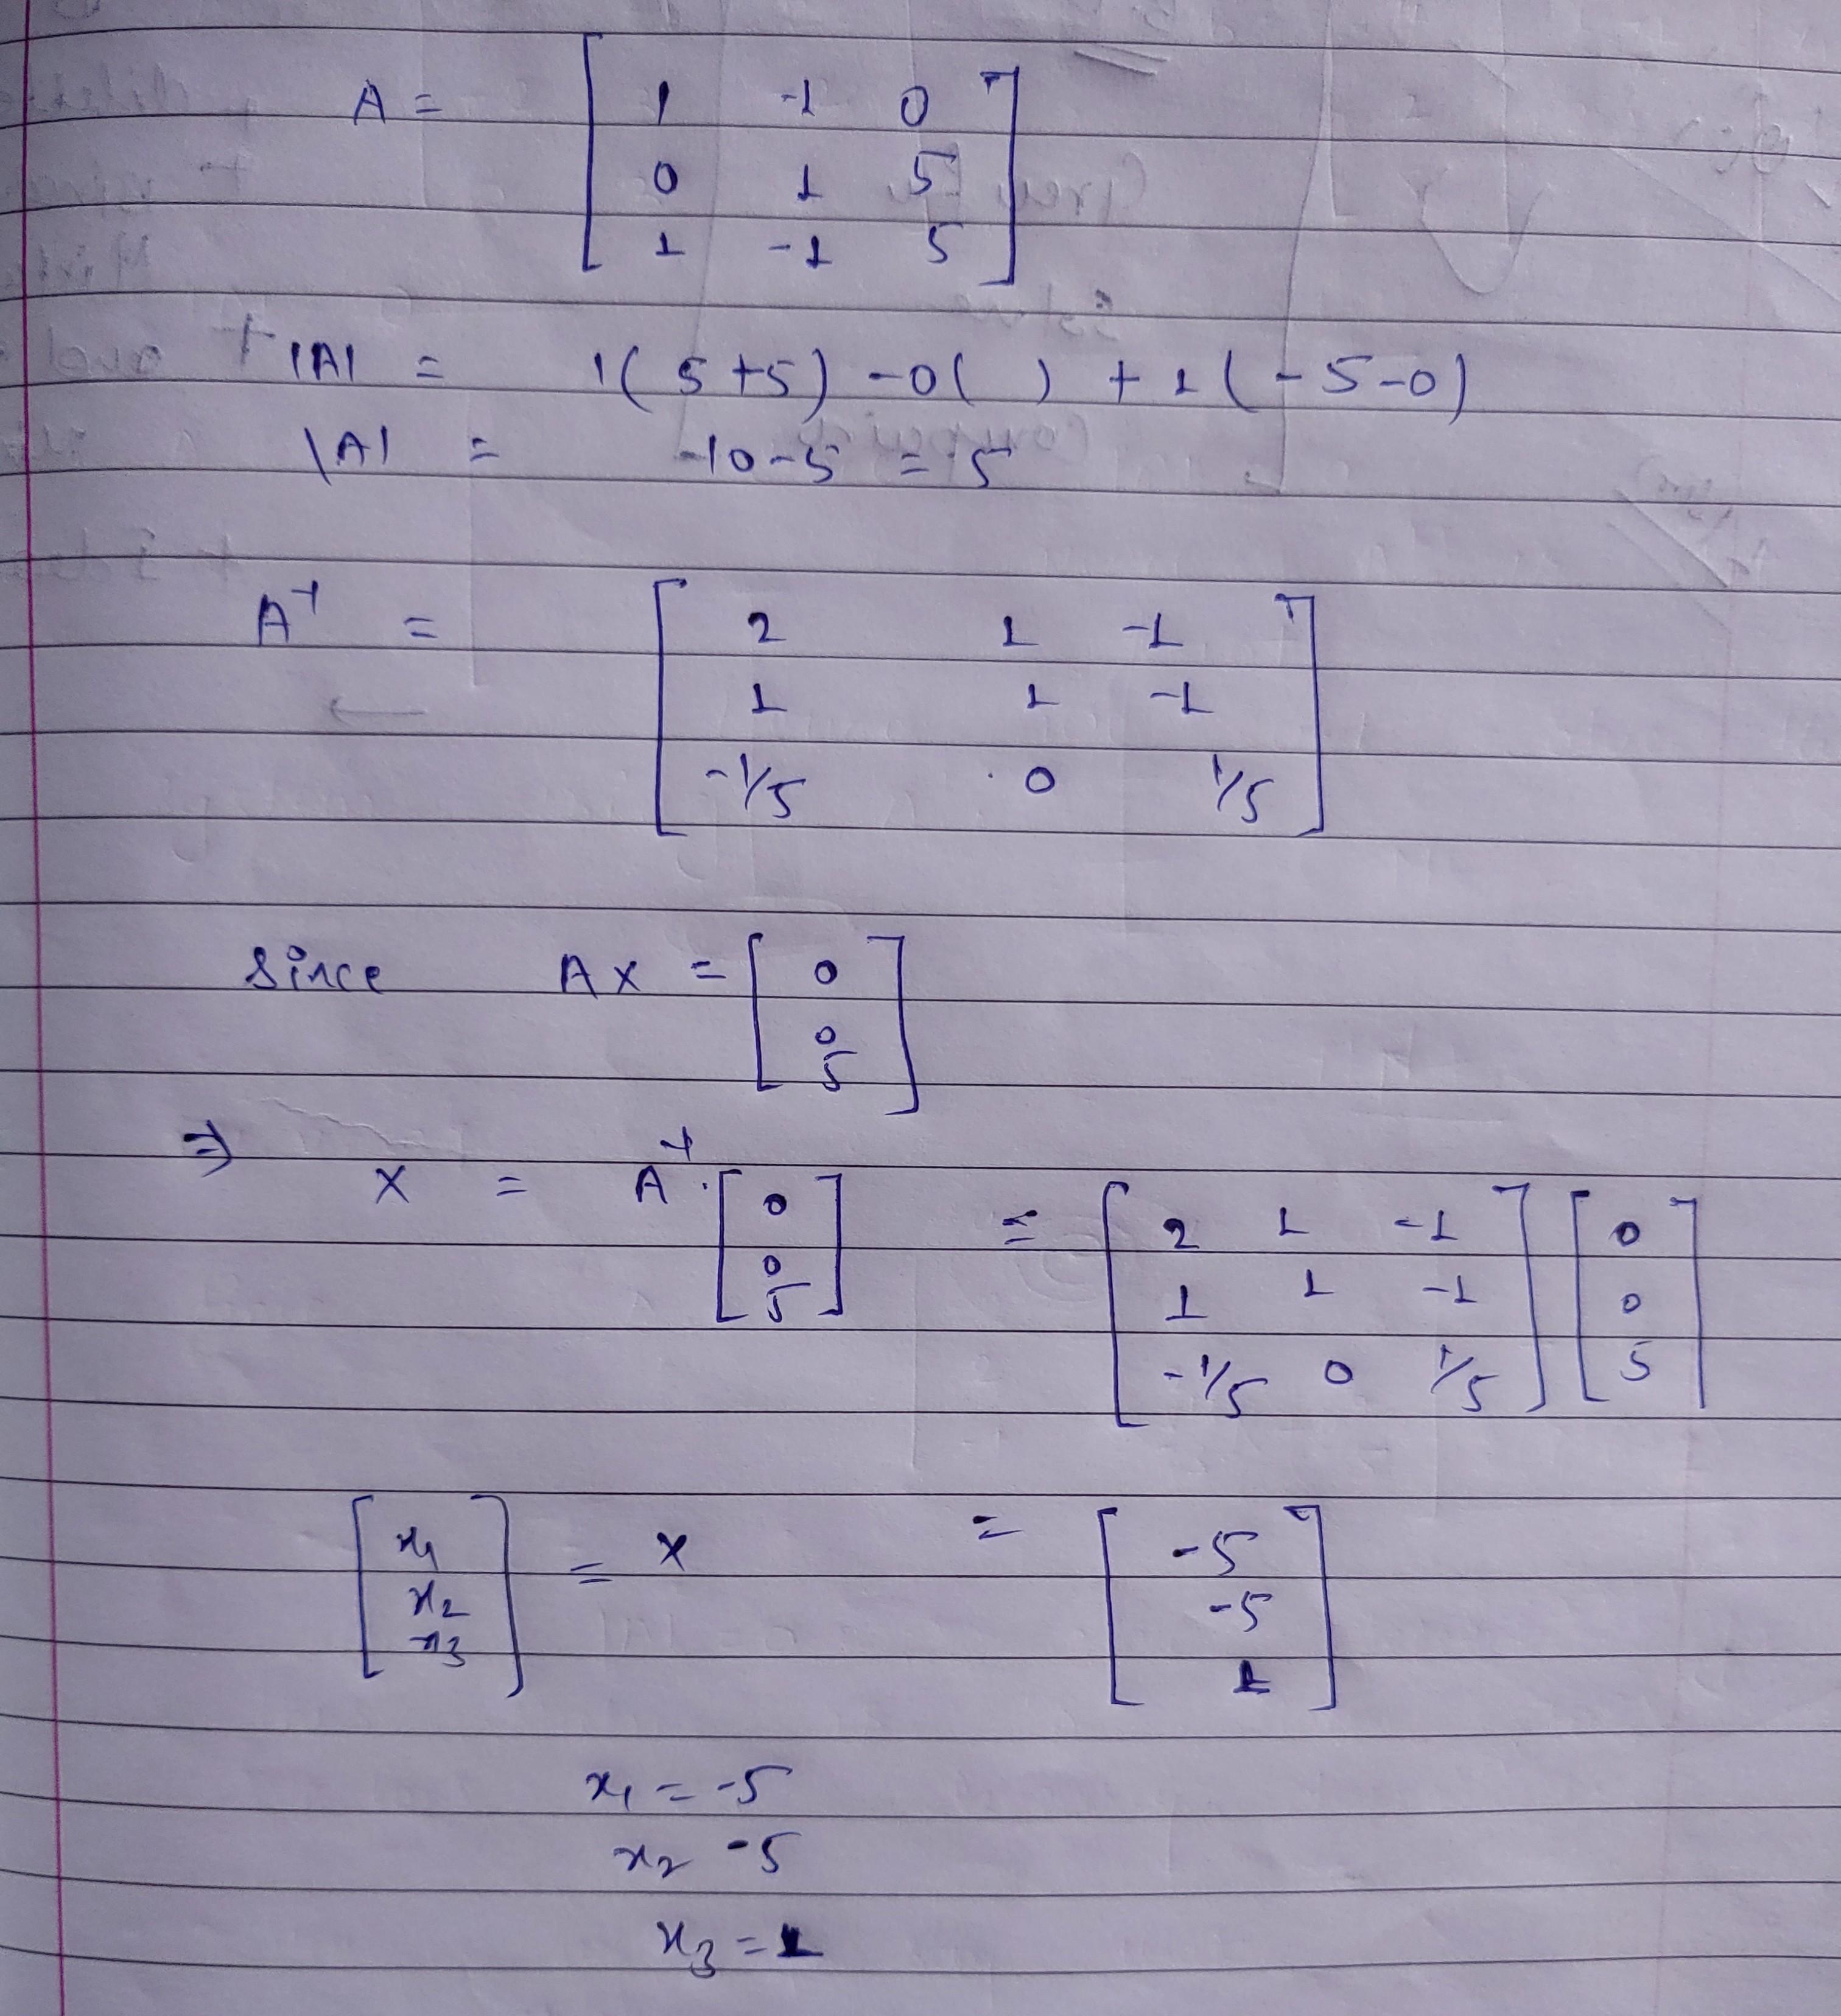 A = [ 1 -1 0
0 1 5
1 -1 5 ]
|A| = 1( 5+5) -0( ) + 1 ( -5-0)
|A| = 10-5 = 5
A⁻¹ = [ 2 1 -1
1 1 -1
-1/5 0 1/5 ]
Since AX = [ 0
0
5 ]
⇒ X = A⁻¹. [ 0 0 5 ] = [ 2 1 -1
1 1 -1
-1/5 0 1/5 ] [ 0
0
5 ]
[ x₁
x₂
x₃ ] = X = [ -5
-5
1 ]
x₁ = -5
x₂ -5
x₃ = 1